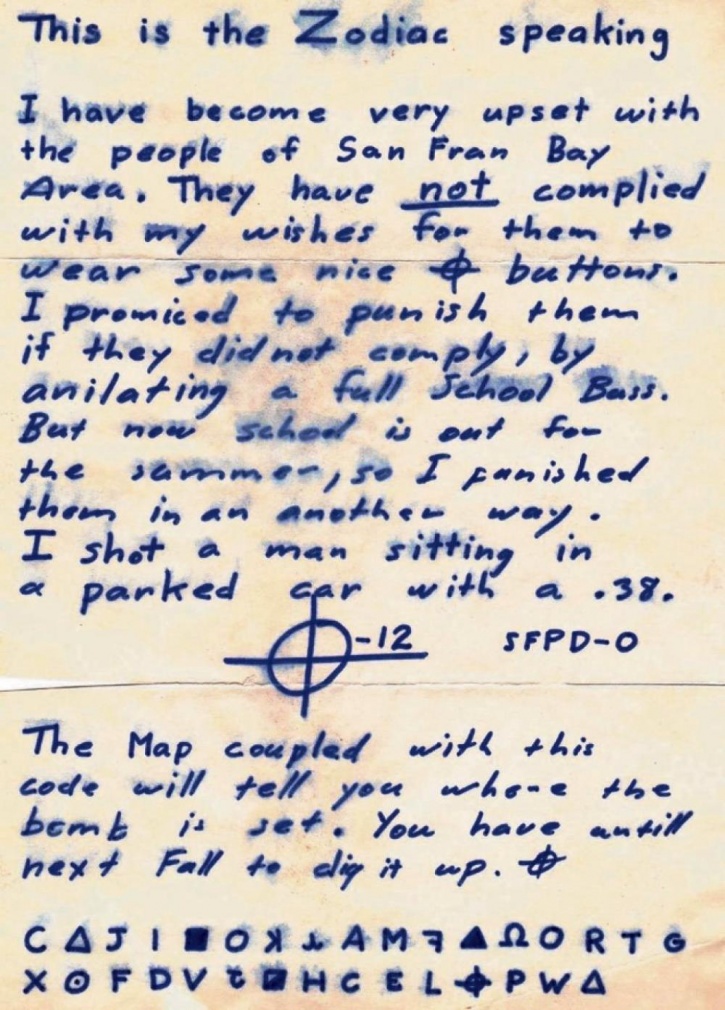 This is the Zodiac speaking
I have become very upset with
the people of San Fran Bay
Area. They have not complied
with my wishes for them to
wear some nice ⌖ buttons.
I promiced to punish them
if they did not comply, by
anilating a full School Buss.
But now school is out for
the summer, so I punished
them in an another way.
I shot a man sitting in
a parked car with a .38.
⌖-12 SFPD-0
The Map coupled with this
code will tell you where the
bomb is set. You have untill
next Fall to dig it up. ⌖
C Δ J I ■ O ꓘ ⅄ A M ꟻ ▲ Ω O R T G
X ⊙ F D V ⊂ ◪ H C E L ⌖ P W Δ